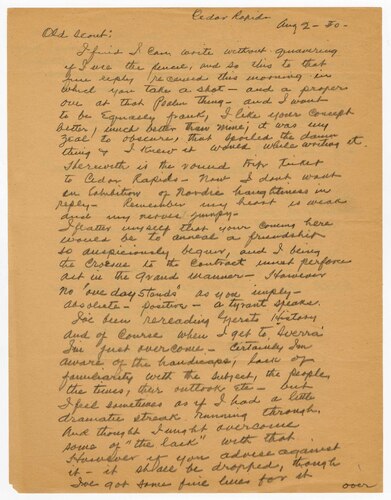 Cedar Rapids
Aug 2 - 30 -
Old Scout:
I find I can write without quavering
if I use the pencil, and so this to that
fine reply received this morning in
which you take a shot - and a proper
one at that Psalm thing - and I want
to be equally frank, I like your concept
better, much better than mine, it was my
zeal to obscure, that spoiled the damn
thing & I knew it would while writing it.
Herewith is the round trip ticket
to Cedar Rapids - Now I dont want
an exhibition of Nordic haughtiness in
reply - Remember my heart is weak
and my nerves jumpy -
I flatter myself that your coming here
would be to anneal a friendship
so auspiciously begun, and I being
the Croesus to the contract must perforce
act in the Grand manner - However
no "one day stands" as you imply -
absolute - positive - a tyrant speaks.
I've been rereading History
and of course when I get to
I'm just overcome - Certainly I'm
aware of the handicaps, lack of
familiarity with the subject, the people,
the times, their outlook etc - but
I feel sometimes as if I had a little
dramatic streak running through,
and thought I might overcome
some of "the lack" with that.
However if you advise against
it - it shall be dropped, though
I've got some fine lines for it
over